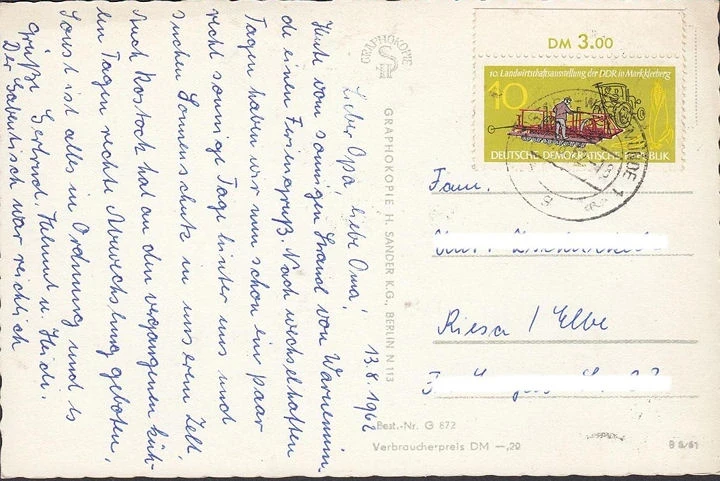 Lieber Opa, liebe Oma! 13.8.1962
Heute vom sonnigen Strand von Warnemün-
de einen Feriengruß. Nach wechselhaften
Tagen haben wir nun schon ein paar
recht sonnige Tage hinter uns und
suchen Sonnenschutz in unserem Zelt.
Auch Rostock hat an den vergangenen küh-
len Tagen rechte Abwechslung geboten.
Sonst ist alles in Ordnung und es
grüßt Gertrud, Helmut u. Heidi.
Der Gabentisch war reichlich
GRAPHOKOPIE
GRAPHOKOPIE H. SANDER K.G., BERLIN N 113
Best.-Nr. G 872
Verbraucherpreis DM —,20
B 5/61
DM 3.00
10. Landwirtschaftsausstellung der DDR in Markkleeberg
10
DEUTSCHE DEMOKRATISCHE REPUBLIK
Fam.
Riesa / Elbe